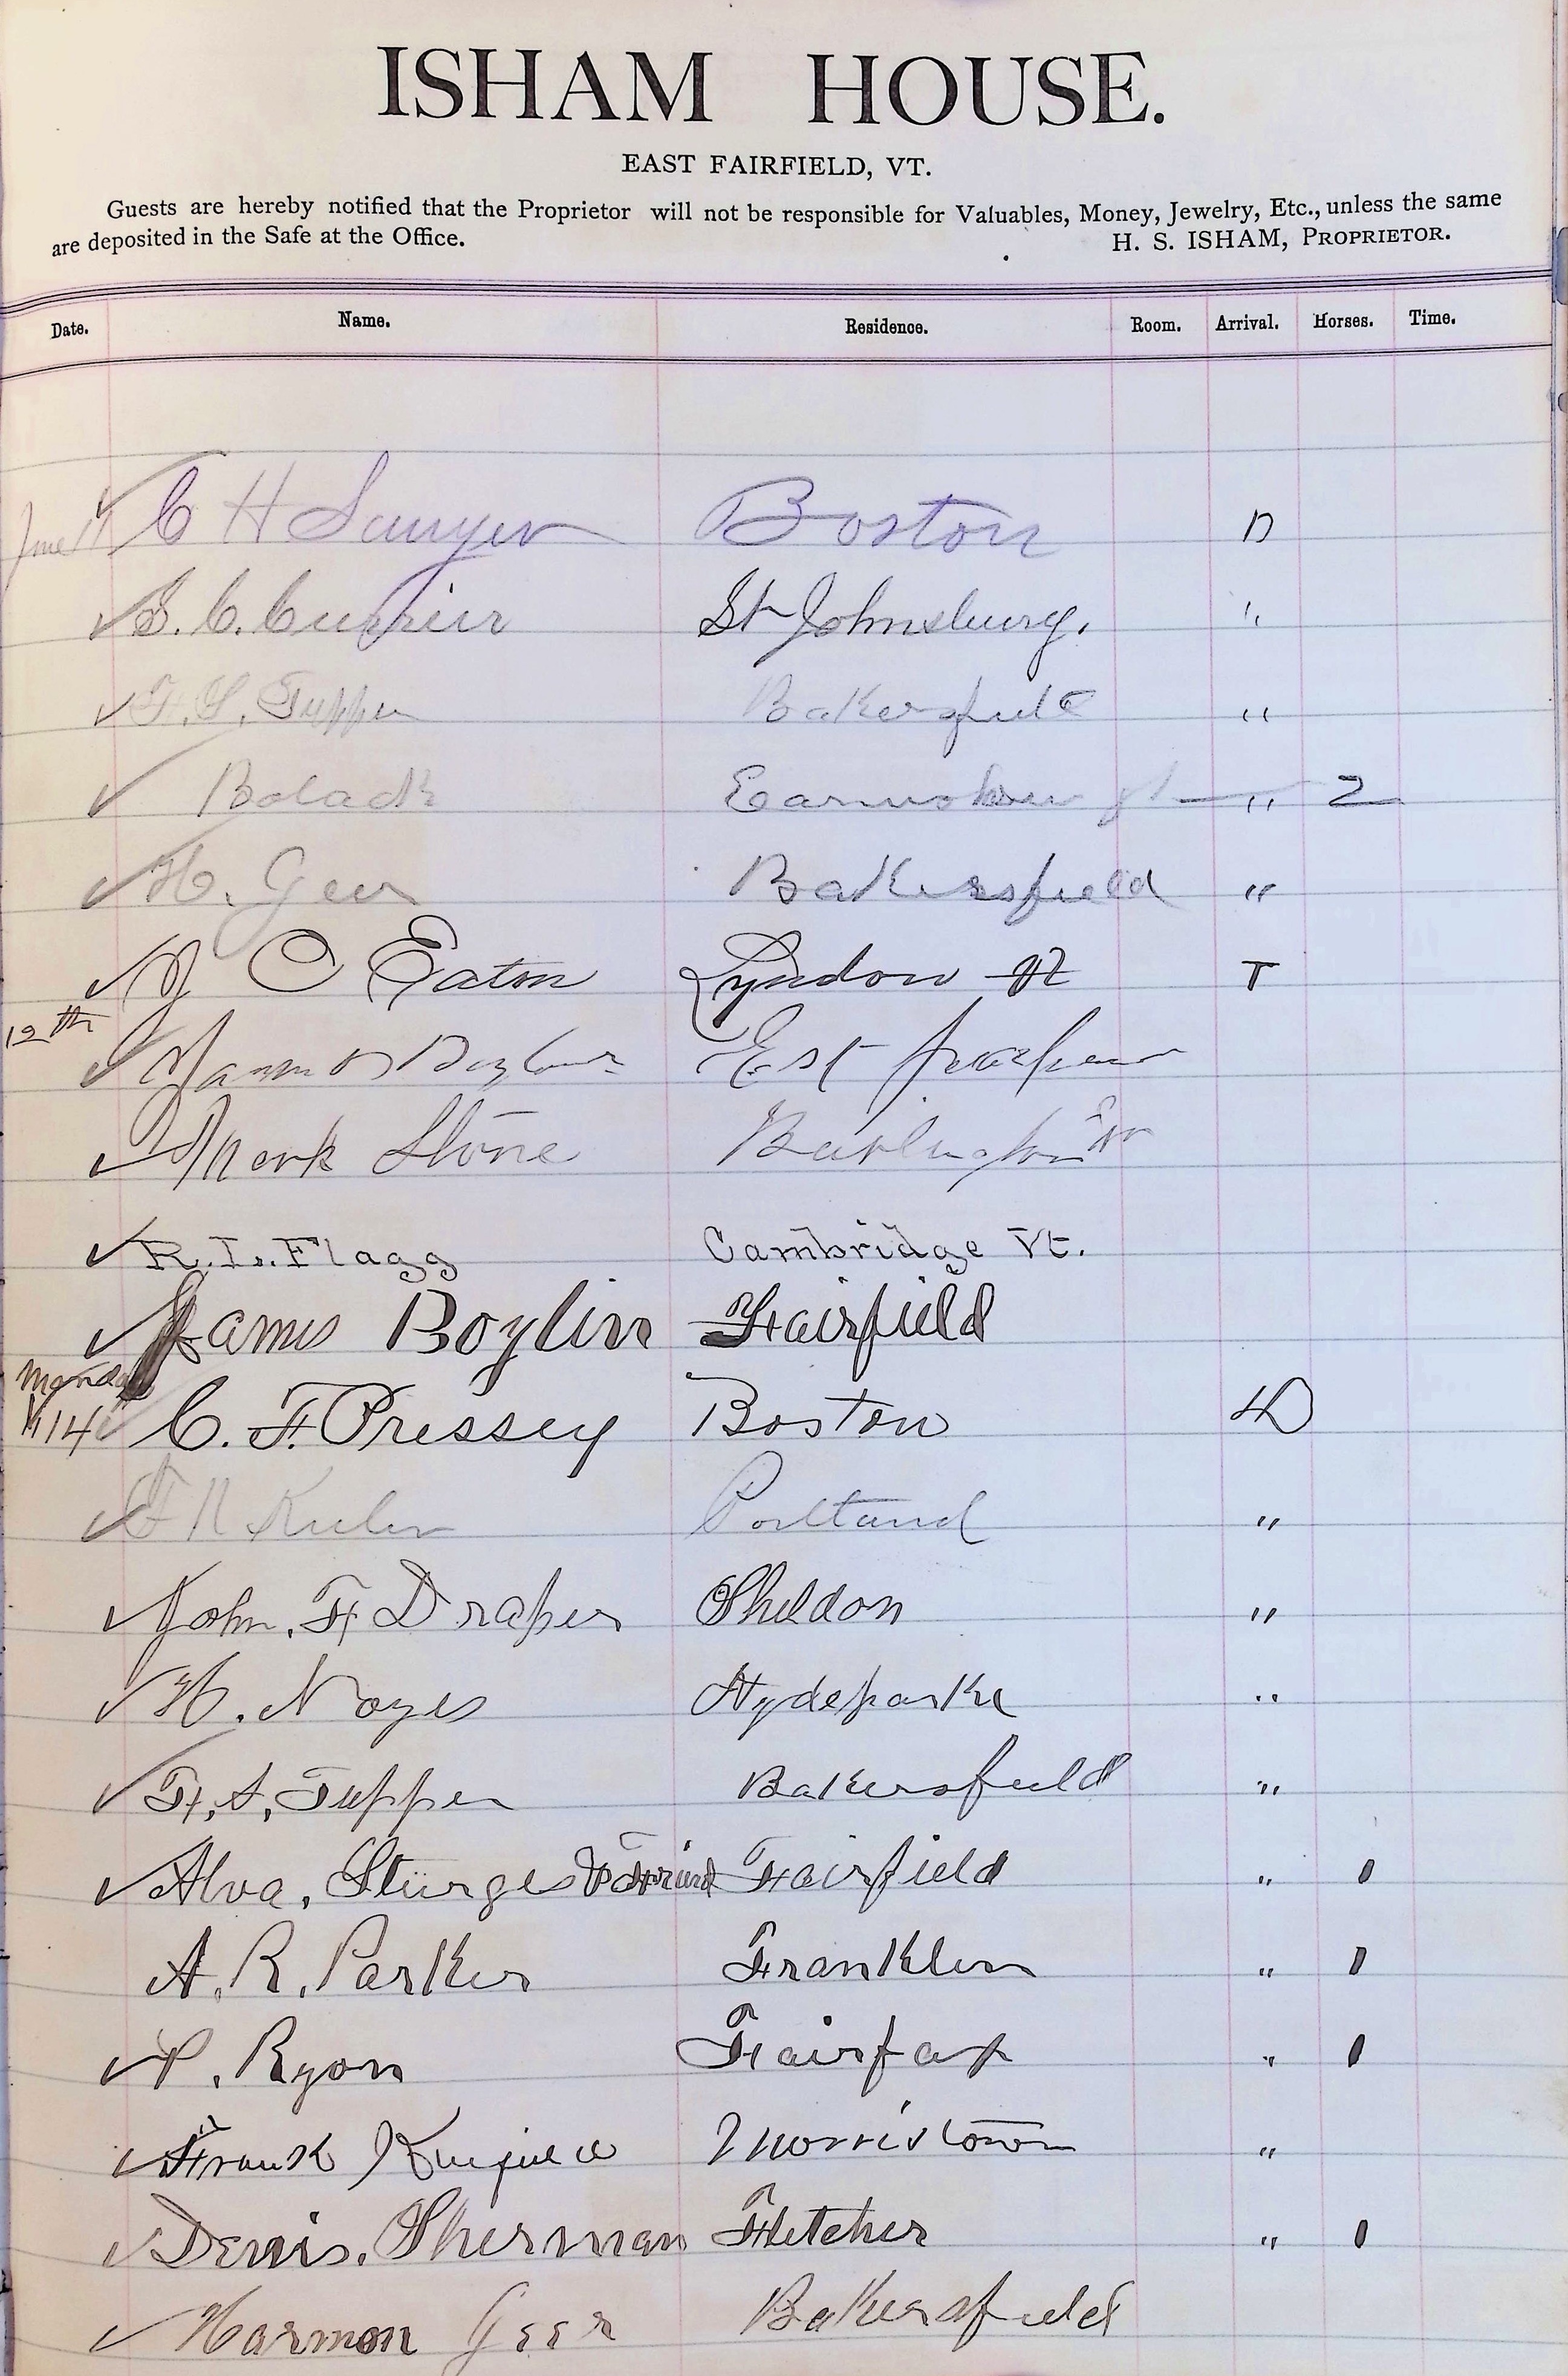 ISHAM HOUSE.
EAST FAIRFIELD, VT.
Guests are hereby notified that the Proprietor will not be responsible for Valuables, Money, Jewelry, Etc., unless the same
are deposited in the Safe at the Office. H. S. ISHAM, PROPRIETOR.
Date. Name. Residence. Room. Arrival. Horses. Time.
June 11 C H Sawyer Boston D
S. C. Currier St Johnsbury. "
F. S. Tupper Bakersfield "
" 2
H. Geer Bakersfield "
J O Eaton Lyndon Vt T
12th
East
Mark Stone Burlington
R. L. Flagg Cambridge Vt.
James Boylin Fairfield
Monday
14 C. F. Pressey Boston D
F N Portland "
John. F. Draper Sheldon "
H. Noyes Hydeparke "
F. S. Tupper Bakersfield "
Alva. Sturges & Friend Fairfield " 1
A. R. Parker Franklin " 1
P. Ryon Fairfax " 1
Frank Morristown "
Denis. Sherman Fletcher " 1
Harmon Geer Bakersfield